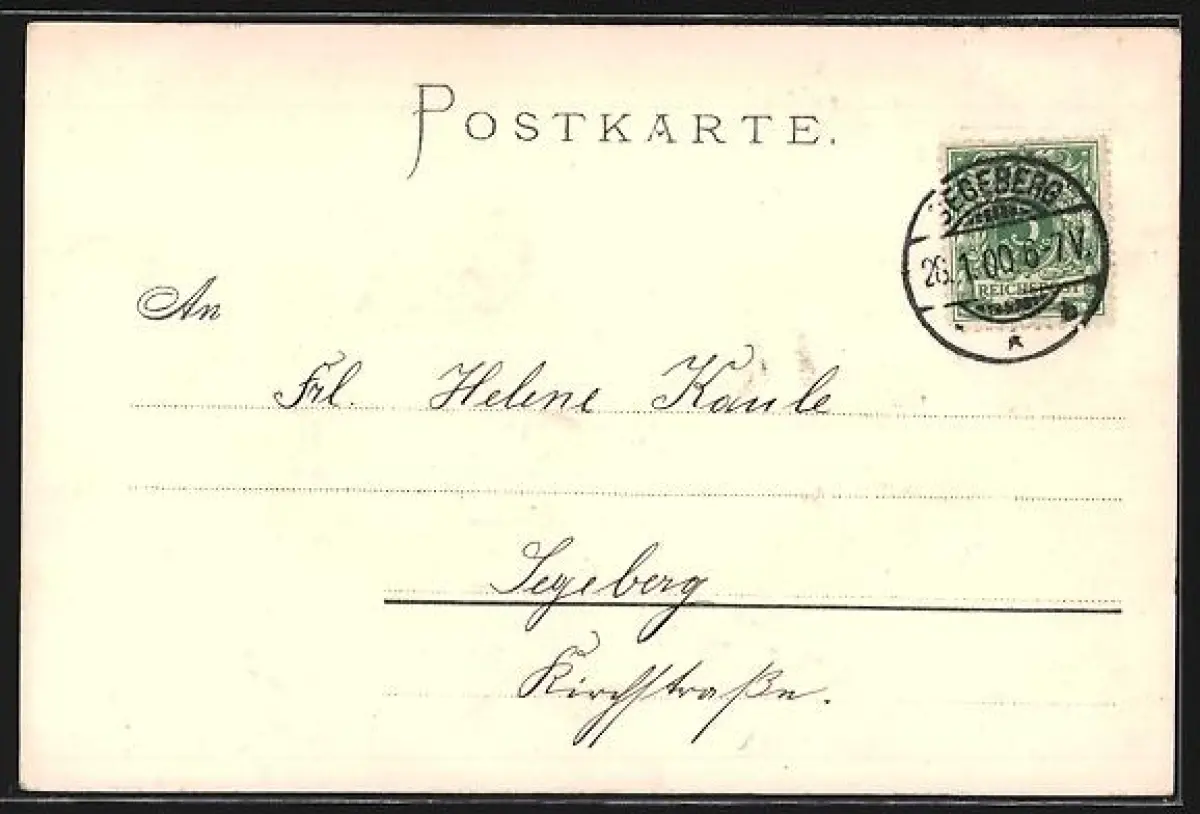 POSTKARTE.
SEGEBERG
26.1.00 6-7V.
5
REICHSPOST
b
An
Frl. Helene Kaule
Segeberg
Kirchstraße.